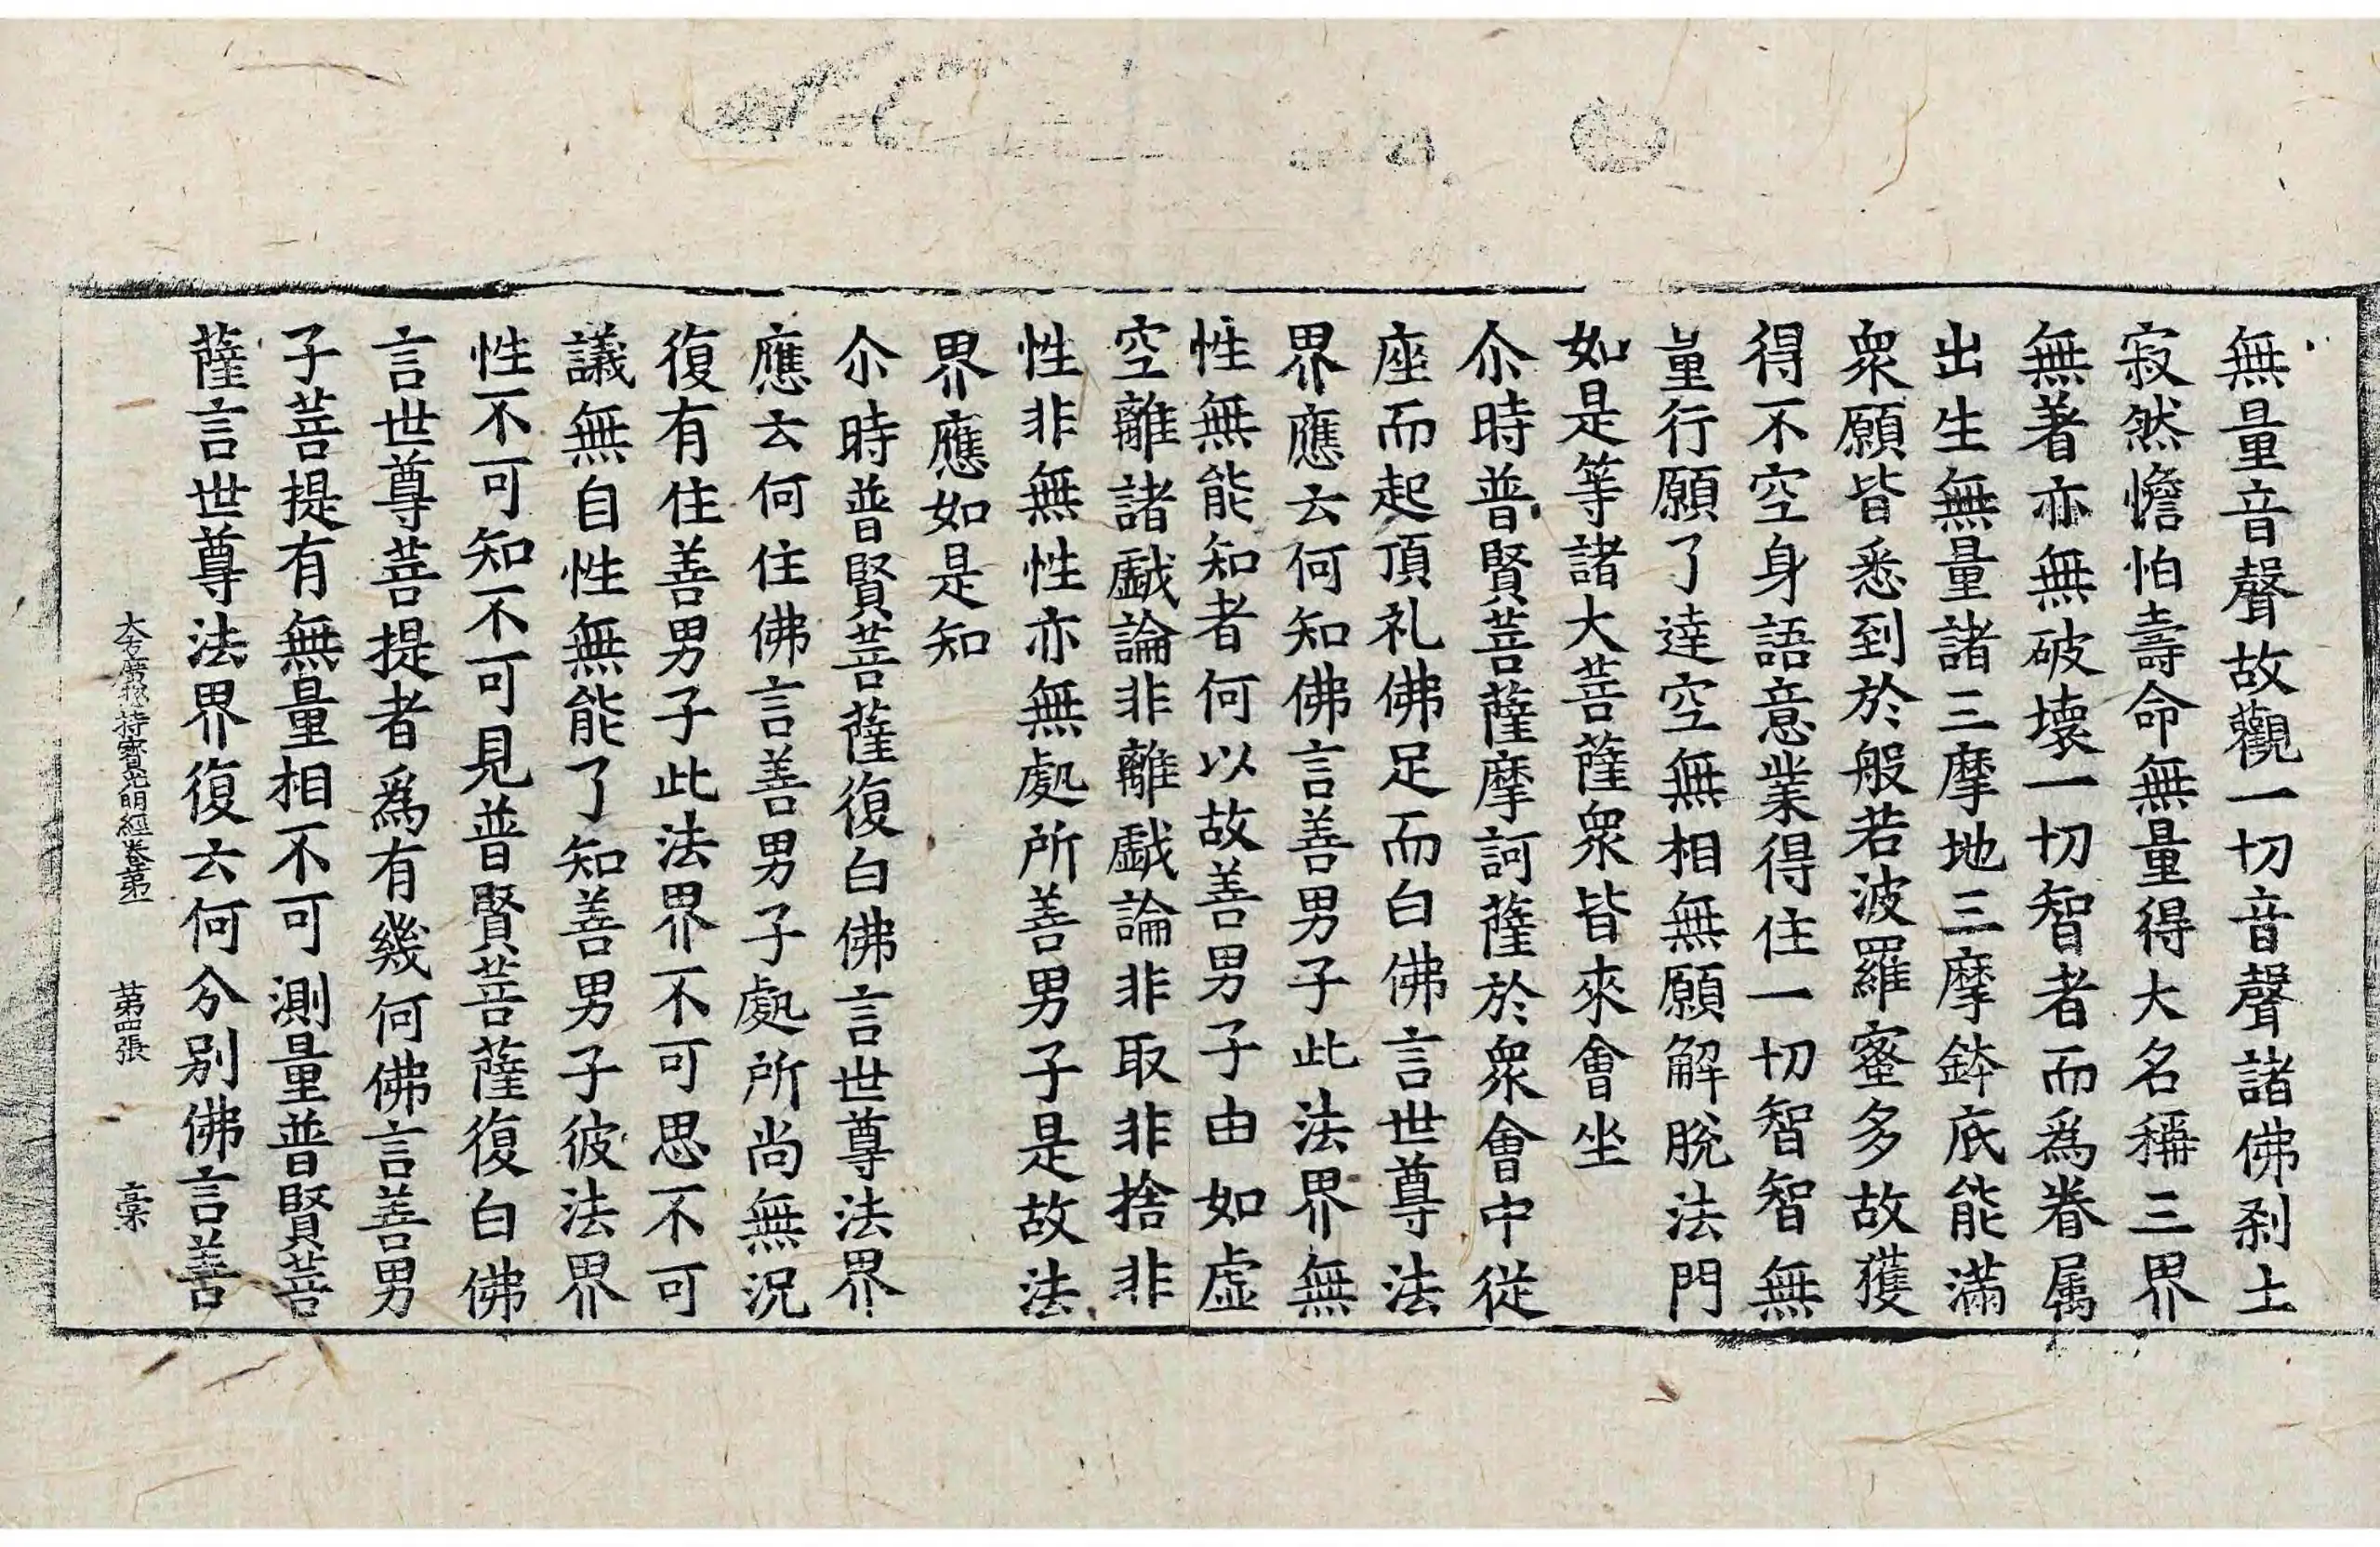 無量音聲故觀一切音聲諸佛剎土
寂然憺怕壽命無量得大名稱三界
無著亦無破壞一切智者而為眷属
出生無量諸三摩地三摩鉢底能滿
衆願皆悉到於般若波羅蜜多故獲
得不空身語意業得住一切智智無
量行願了達空無相無願解脫法門
如是等諸大菩薩衆皆來會坐
尒時普賢菩薩摩訶薩於衆會中從
座而起頂礼佛足而白佛言世尊法
界應云何知佛言善男子此法界無
性無能知者何以故善男子由如虛
空離諸戱論非離戱論非取非捨非
性非無性亦無處所善男子是故法
界應如是知
尒時普賢菩薩復白佛言世尊法界
應云何住佛言善男子處所尚無況
復有住善男子此法界不可思不可
議無自性無能了知善男子彼法界
性不可知不可見普賢菩薩復白佛
言世尊菩提者爲有幾何佛言善男
子菩提有無量相不可測量普賢菩
薩言世尊法界復云何分別佛言善
大方廣揔持寶光明經卷第一 第四張 槀